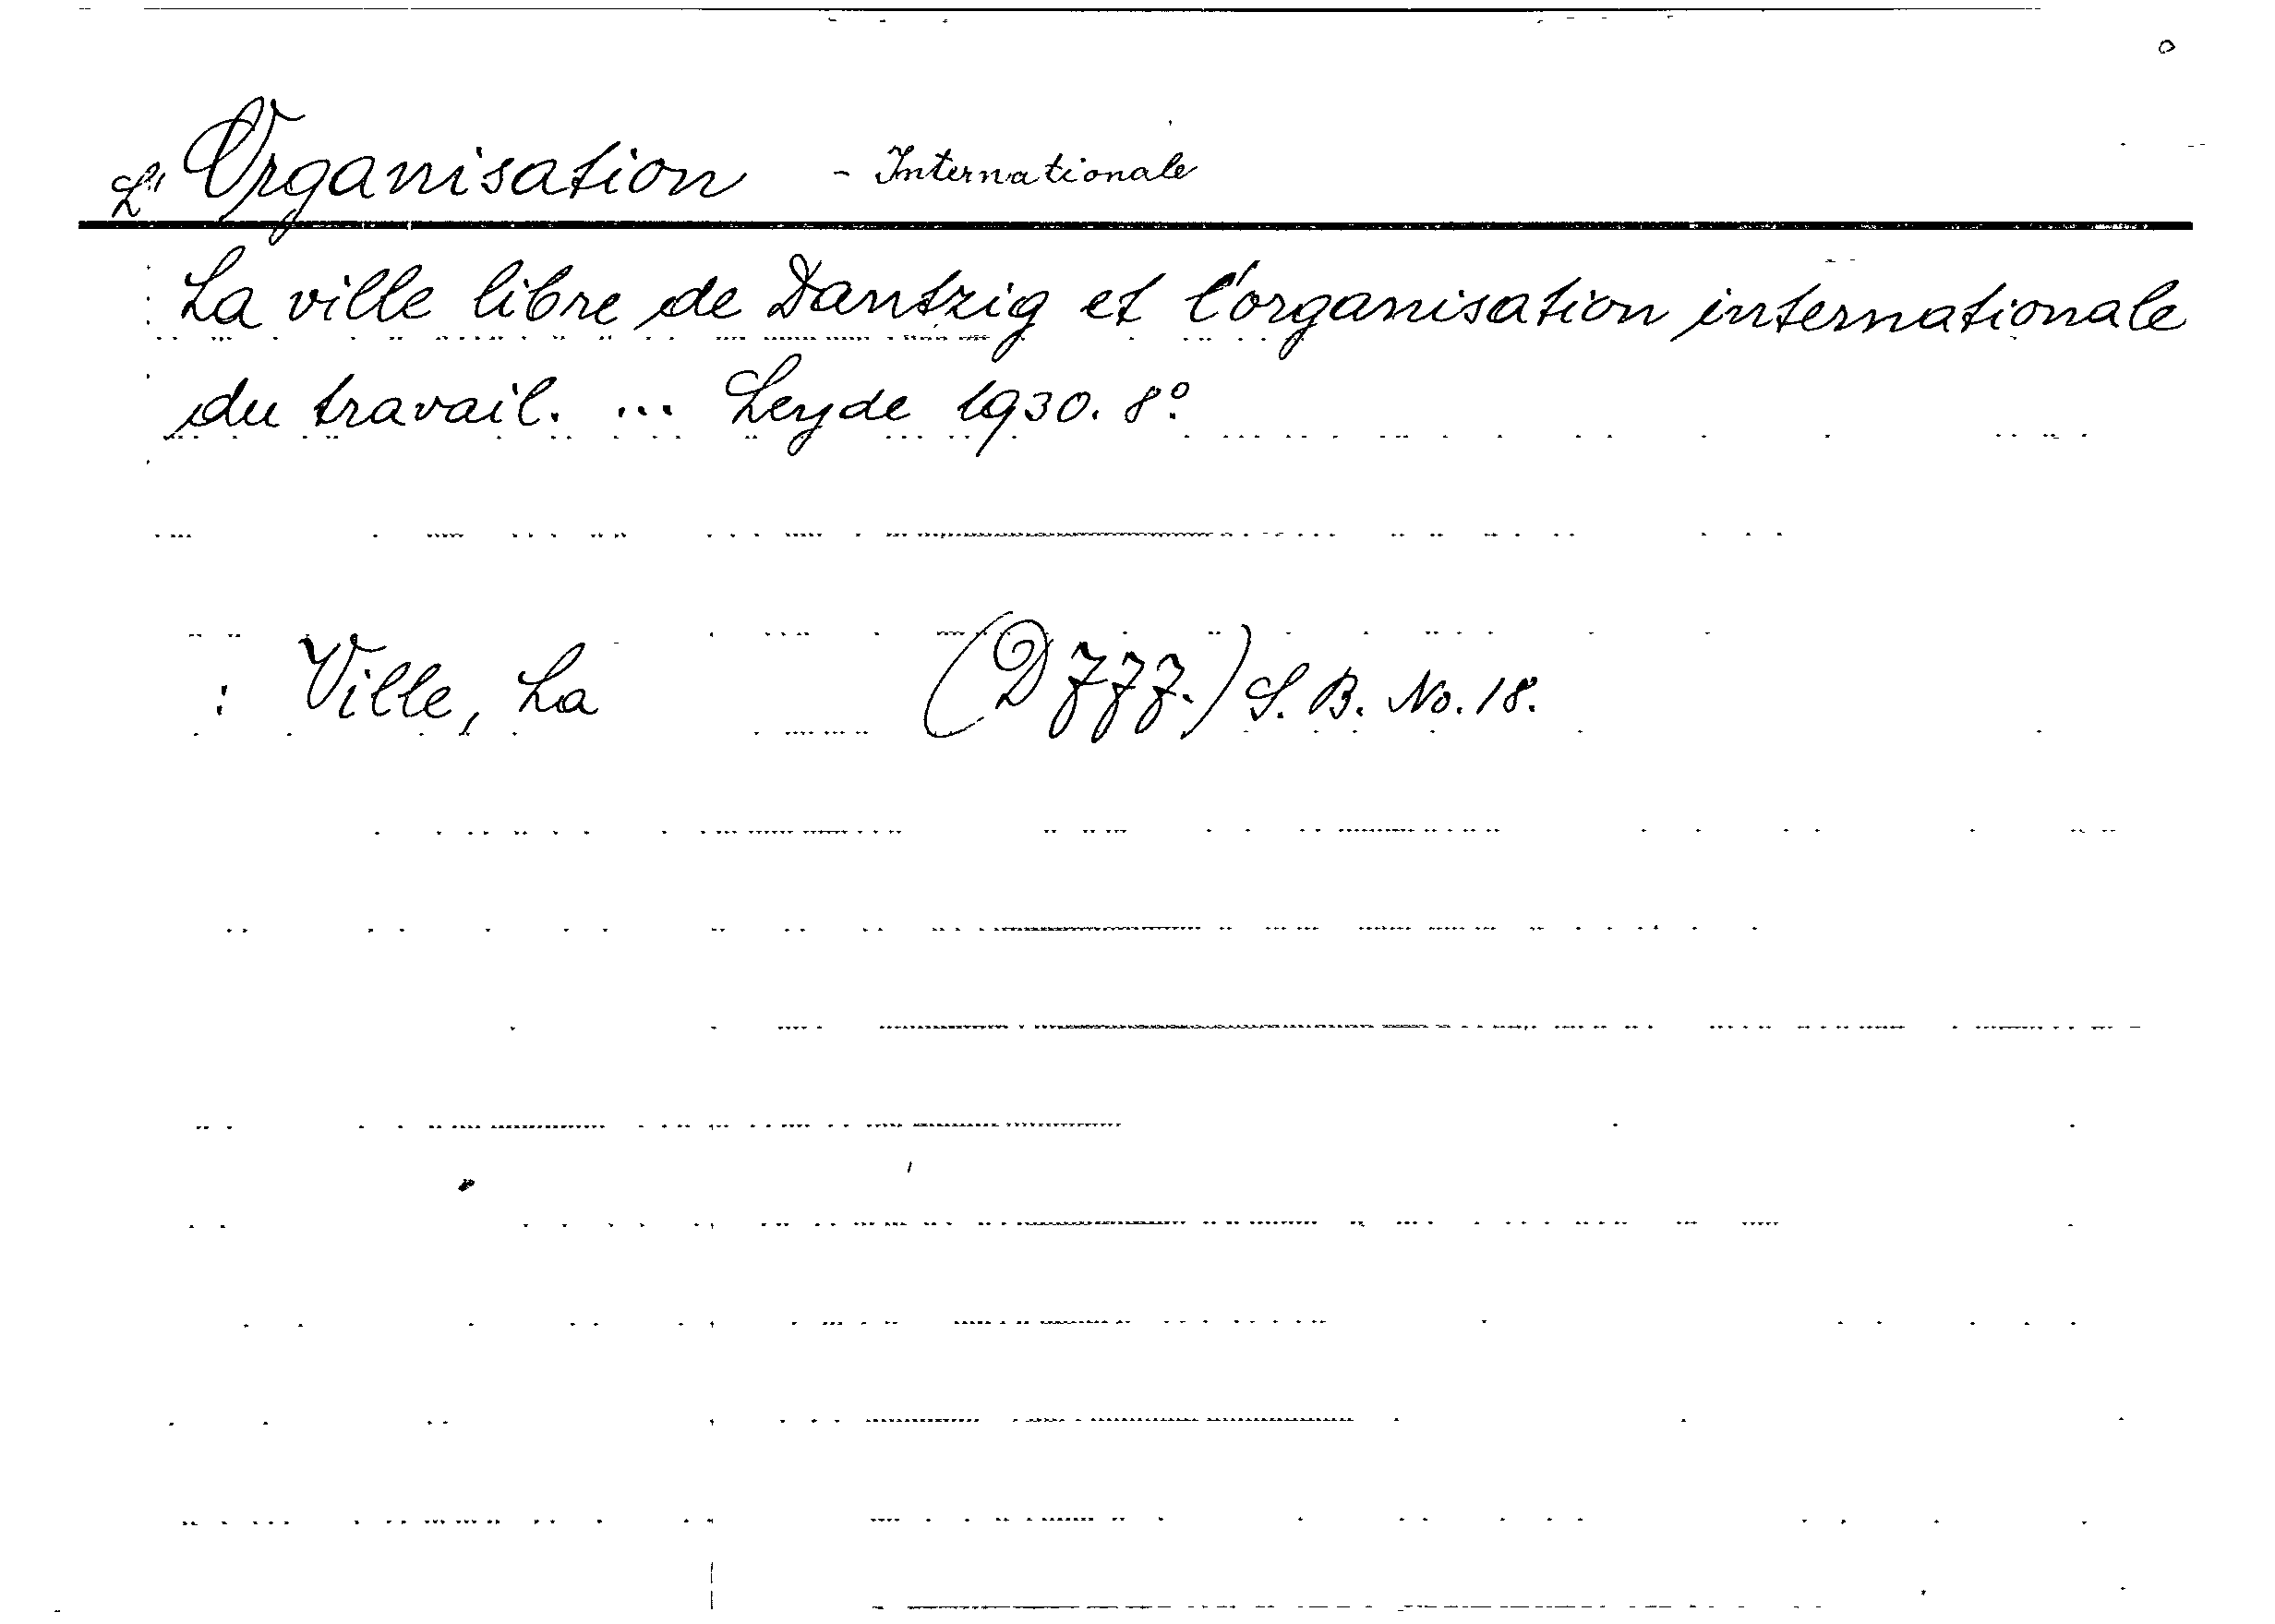 L'Organisation - Internationale
La ville libre de Dantzig et l'organisation internationale
du travail. ... Leyde 1930. 8º.
: Ville, La (D 777.) S. B. No. 18.